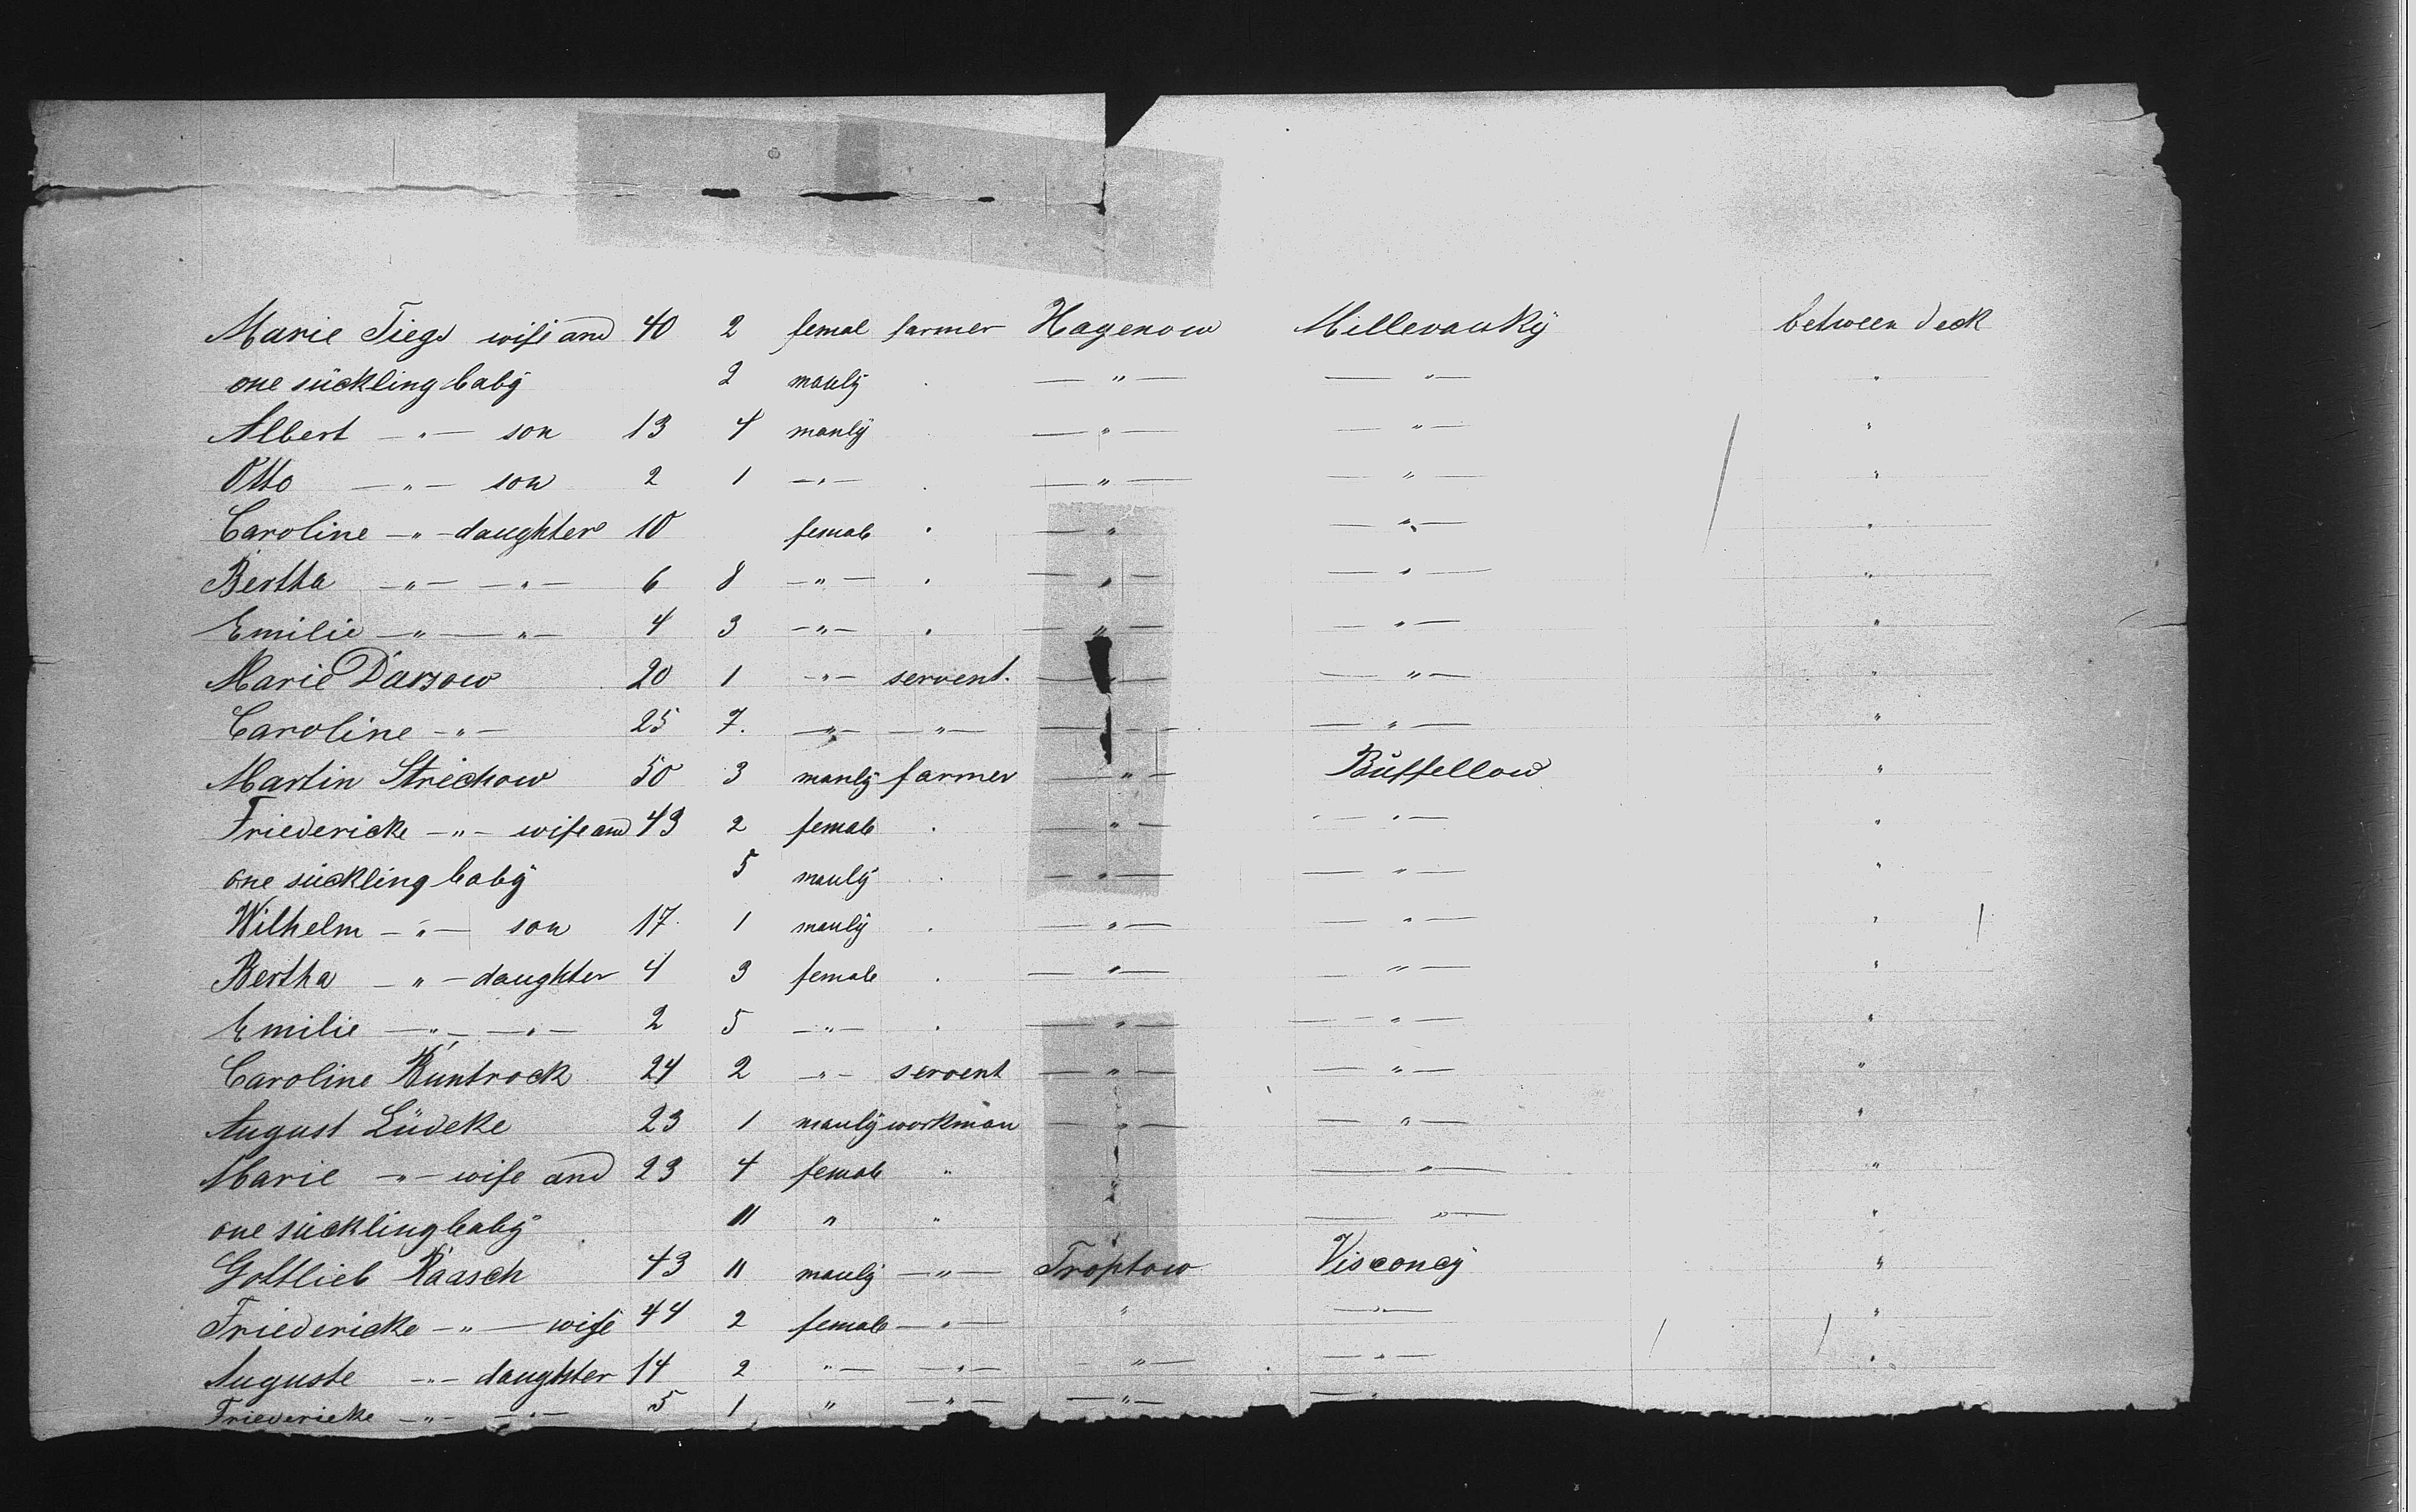 Marie Tiegs wife and 40 2 femal farmer Hagenow Millevauky between deck
one sückling baby 2 manly . — " — — " — "
Albert — " — son 13 4 manly — " — — " — "
Otto — " — son 2 1 — " — . — " — — " — "
Caroline — " — daughter 10 female . — " — — " — "
Bertha — " — — " — 6 8 — " — . — " — — " — "
Emilie — " — — " — 4 3 — " — . — " — — " — "
Marie Darsow 20 1 — " — servent. — — — " — "
Caroline — " — 25 7. — " — — " — — — — " — "
Martin Strechow 50 3 manly farmer — " — Büffellow "
Friedericke — " — wife and 43 2 female . — " — — " — "
one sückling baby 5 manly . — " — — " — "
Wilhelm — " — son 17. 1 manly . — " — — " — "
Bertha — " — daughter 4 3 female . — " — — " — "
Emilie — " — — " — 2 5 — " — . — " — — " — "
Caroline Buntrock 24 2 — " — servent — " — — " — "
August Lüdeke 23 1 manly workman — " — — " — "
Marie — " — wife and 23 4 female " " — " — "
one sückling baby 11 " " " — " — "
Gottlieb Raasch 43 11 manly — " — Troptow Visconcy "
Friedericke — " — wife 44 2 female — " — " — " — "
Auguste — " — daughter 14 2 " — — " — " — — " — "
Friedericke — " — — " — 5 1 " — " — — " — — "